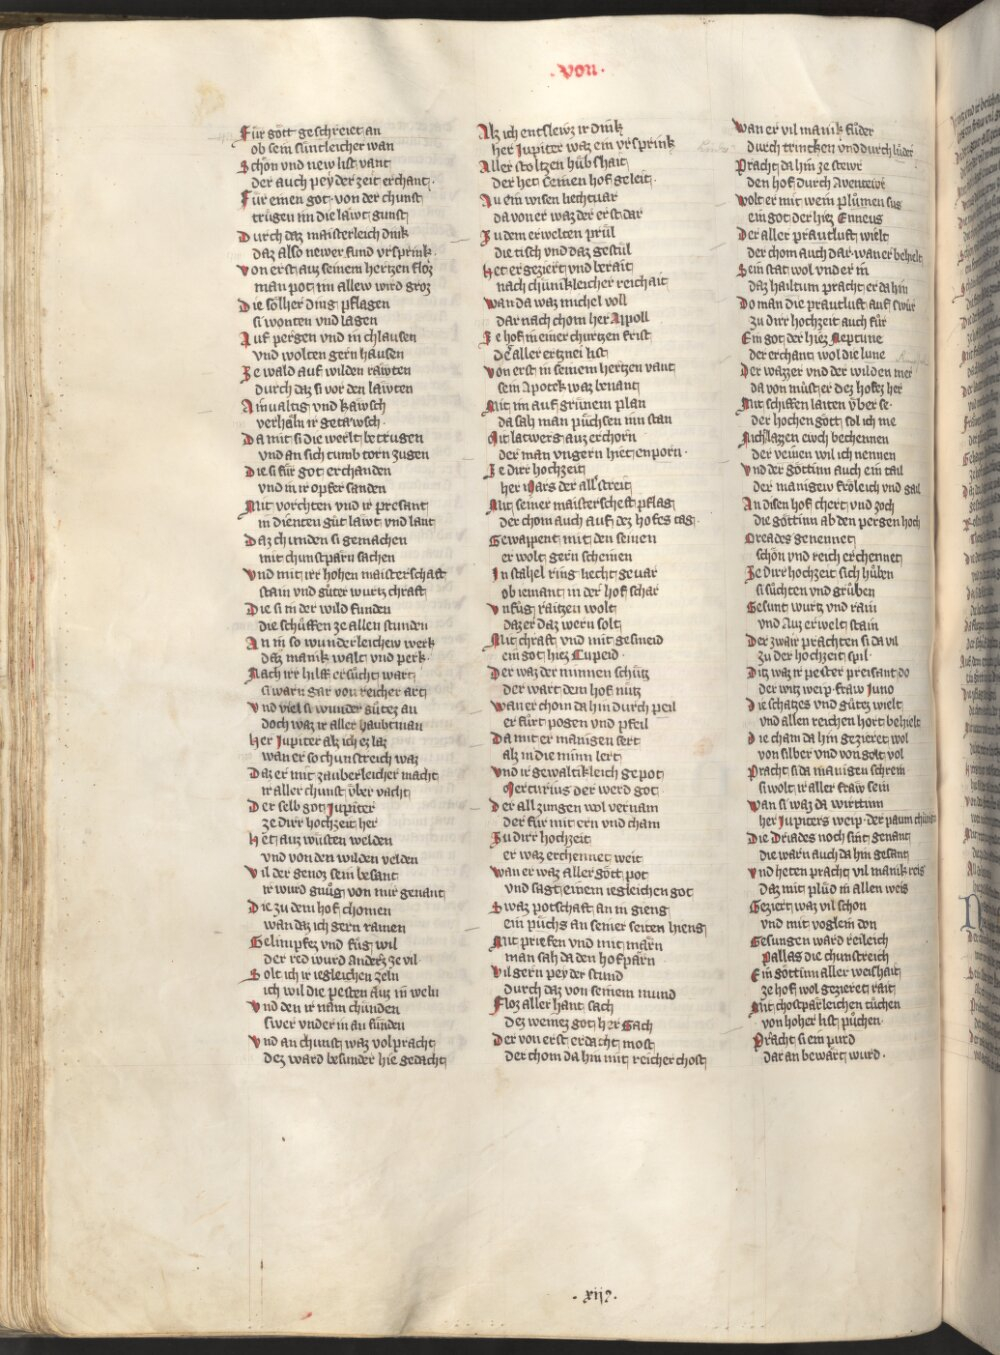 · Von ·
Für gött geschreiet an
ob sein süntleicher wan
Schön vnd new list vant
der auch pey der zeit erchant ·
Für einen got · von der chunst
trügen im die läwt gunst
Durch daz maisterleich dink
daz also newer fund vrsprink ·
Von erst auz seinem hertzen floz
man pot im allew wird groz
Die sölher ding pflagen
si wonten vnd lagen
Auf pergen vnd in chlausen
vnd wolten gern hausen
Ze wald auf wilden räwten
durch daz si vor den läwten
Ainualtig vnd käwsch
verhäln ir getäwsch ·
Da mit si die werlt betrugen
vnd an sich tumb torn zugen
Die si für got erchanden
vnd in ir opfer sanden
Mit vorchten vnd ir presant
in dienten güt läwt vnd lant
Daz chunden si gemachen
mit chunstpärn sachen
Vnd mit irr hohen maisterschaft
stain vnd güter wurtz chraft
Die si in der wild funden
die schüffen ze allen stunden
An in so wunderleichew werk
daz manik walt vnd perk ·
Nach irr hilff ersücht wart
si warn gar von reicher art
Vnd viel si wunder gütez an
doch waz ir aller haubtman
Her Jupiter alz ich ez laz
wan er so chunstreich waz
Daz er mit zauberleicher macht
ir aller chunst vber vacht
Der selb got Jupiter
ze dirr hochzeit her
Het auz wüsten welden
vnd von den wilden velden
Vil der genoz sein besant
ir wurd gnüg von mir genant
Die zu dem hof chomen
wan daz ich gern ramen
Gelimpfez vnd füg wil
der red wurd anders ze vil
Solt ich ir iegleichen zeln
ich wil die pesten auz in weln
Vnd den ir nam chünden
swer vnder in an sünden
Vnd an chunst waz volpracht
dez ward besunder hie gedacht
Alz ich entslewz ir dink
her Jupiter waz ein vrsprink
Aller stoltzen hübshait
der het seinen hof geleit ·
Au ein wisen liechtuar
da von er waz der erst dar
Zu dem erwelten prül
die tisch vnd daz gestül
Het er geziert vnd berait
nach chünikleicher reichait
Wan da waz michel voll
dar nach chom her Appoll
Ze hof in einer churtzen frist
de aller ertznei list
Von erst in seinem hertzen vant
sein Apotek waz benant
Mit im auf grünem plan
da sah man püchsen inn stan
Mit latwerg auz erchorn
der man vngern hiet enporn ·
Ze dirr hochzeit
her Mars der all streit
Mit seiner maisterscheft pflag
der chom auch auf dez hofes tag ·
Gewappent mit den seinen
er wolt gern scheinen
In stahel ring liecht geuar
ob iemant in der hof schar
Vnfüg raitzen wolt
daz er daz wern solt
Mit chraft vnd mit gesmeid
ein got hiez Cupeid ·
Der waz der minnen schütz
der wart dem hof nütz
Wan er chom da hin durch peil
er fürt pogen vnd pfeil
Da mit er manigen sert
alz in die minn lert
Vnd ir gewaltikleich gepot
Mercurius der werd got
Der all zungen wol vernam
der für mit ern vnd cham
Zu dirr hochzeit
er waz erchennet weit
Wan er waz aller gött pot
vnd sagt einem iegleichen got
Swaz potschaft an in gieng
ein püchs an seiner seiten hieng
Mit priefen vnd mit märn
man sah da den hofpärn
Vil gern pey der stund
durch daz von seinem mund
Floz aller hant sach
dez weinez got her Bach
Der von erst erdacht most
der chom da hin mit reicher chost
Wan er vil manik füder
durch trincken vnd durch lüder
Pracht da hin ze stewr
den hof durch Aventewr
Wolt er mit wein plümen sus
ein got der hiez Enneus
Der aller prautluft wielt
der chom auch dar · wan er behielt
Sein stat wol vnder in
daz hailtum pracht er da hin
Do man die prautluft auf swür
zu dirr hochzeit auch für
Ein got der hiez Neptune
der erchant wol die lune
Der wazzer vnd der wilden mer
da von müst er dez hofez her
Mit schiffen laiten vber se ·
der hochen gött sol ich me
Nicht lazzen ewch bechennen
der veinen wil ich nennen
Vnd der göttinn auch ein tail
der manigew fröleich vnd gail
An disen hof chert vnd zoch
die göttinn ab den pergen hoch
Oreades genennet
schön vnd reich erchennet
Ze dirr hochzeit sich hüben
si süchten vnd grüben
Gesunt wurtz vnd rain
vnd Auz erwelt stain
Der zwair prächten si da vil
zu der hochzeit spil ·
Ditz waz ir pester preisant do
der witz weip fraw Juno
Die schatzes vnd gütez wielt
vnd allen reichen hort behielt
Die cham da hin gezieret wol
von silber vnd von golt vol
Pracht si da manigen schrein
si wolt ir aller fraw sein
Wan si waz da wirttinn
her Jupiters weip · der paum
Die Driades noch sint genant
die warn auch da hin gesant
Vnd heten pracht vil manik reis
daz mit plüd in allen weis
Geziert waz vil schon
vnd mit voglein don
Gesungen ward reileich
Pallas die chunstreich
Ein göttinn aller weishait
ze hof wol gezieret rait
Mit chostpärleichen tüchen
von hoher list püchen ·
Pracht si ein purd
dar an bewärt wurd ·
· xiij ·